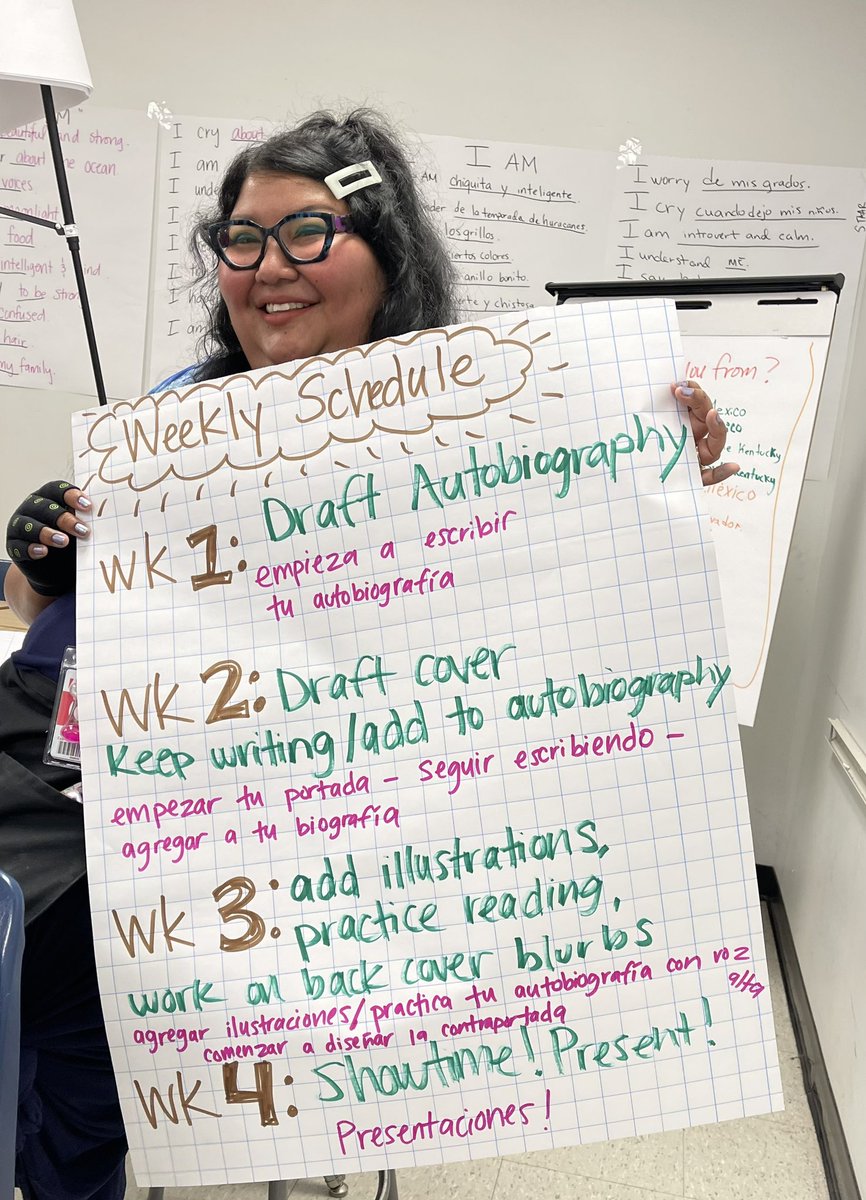 and strong.
about the ocean
voices
food
to be
confused
hair
my family.
I cry about
I am
I
I AM
chiquita y inteligente.
de la temporada de huracanes.
los grillos.
colores.
anillo bonito.
y chistosa
I worry de mis grados.
I cry cuando dejo mis niños.
I am introvert and calm.
I understand ME.
from?
Kentucky
Kentucky
México
Weekly Schedule
WK 1: Draft Autobiography
empieza a escribir
tu autobiografía
WK 2: Draft cover
Keep writing/add to autobiography
empezar tu portada - seguir escribiendo -
agregar a tu biografía
WK 3: add illustrations,
practice reading,
work on back cover blurbs
agregar ilustraciones/practica tu autobiografía con voz
alta
comenzar a diseñar la contraportada
WK 4: Showtime! Present!
Presentaciones!